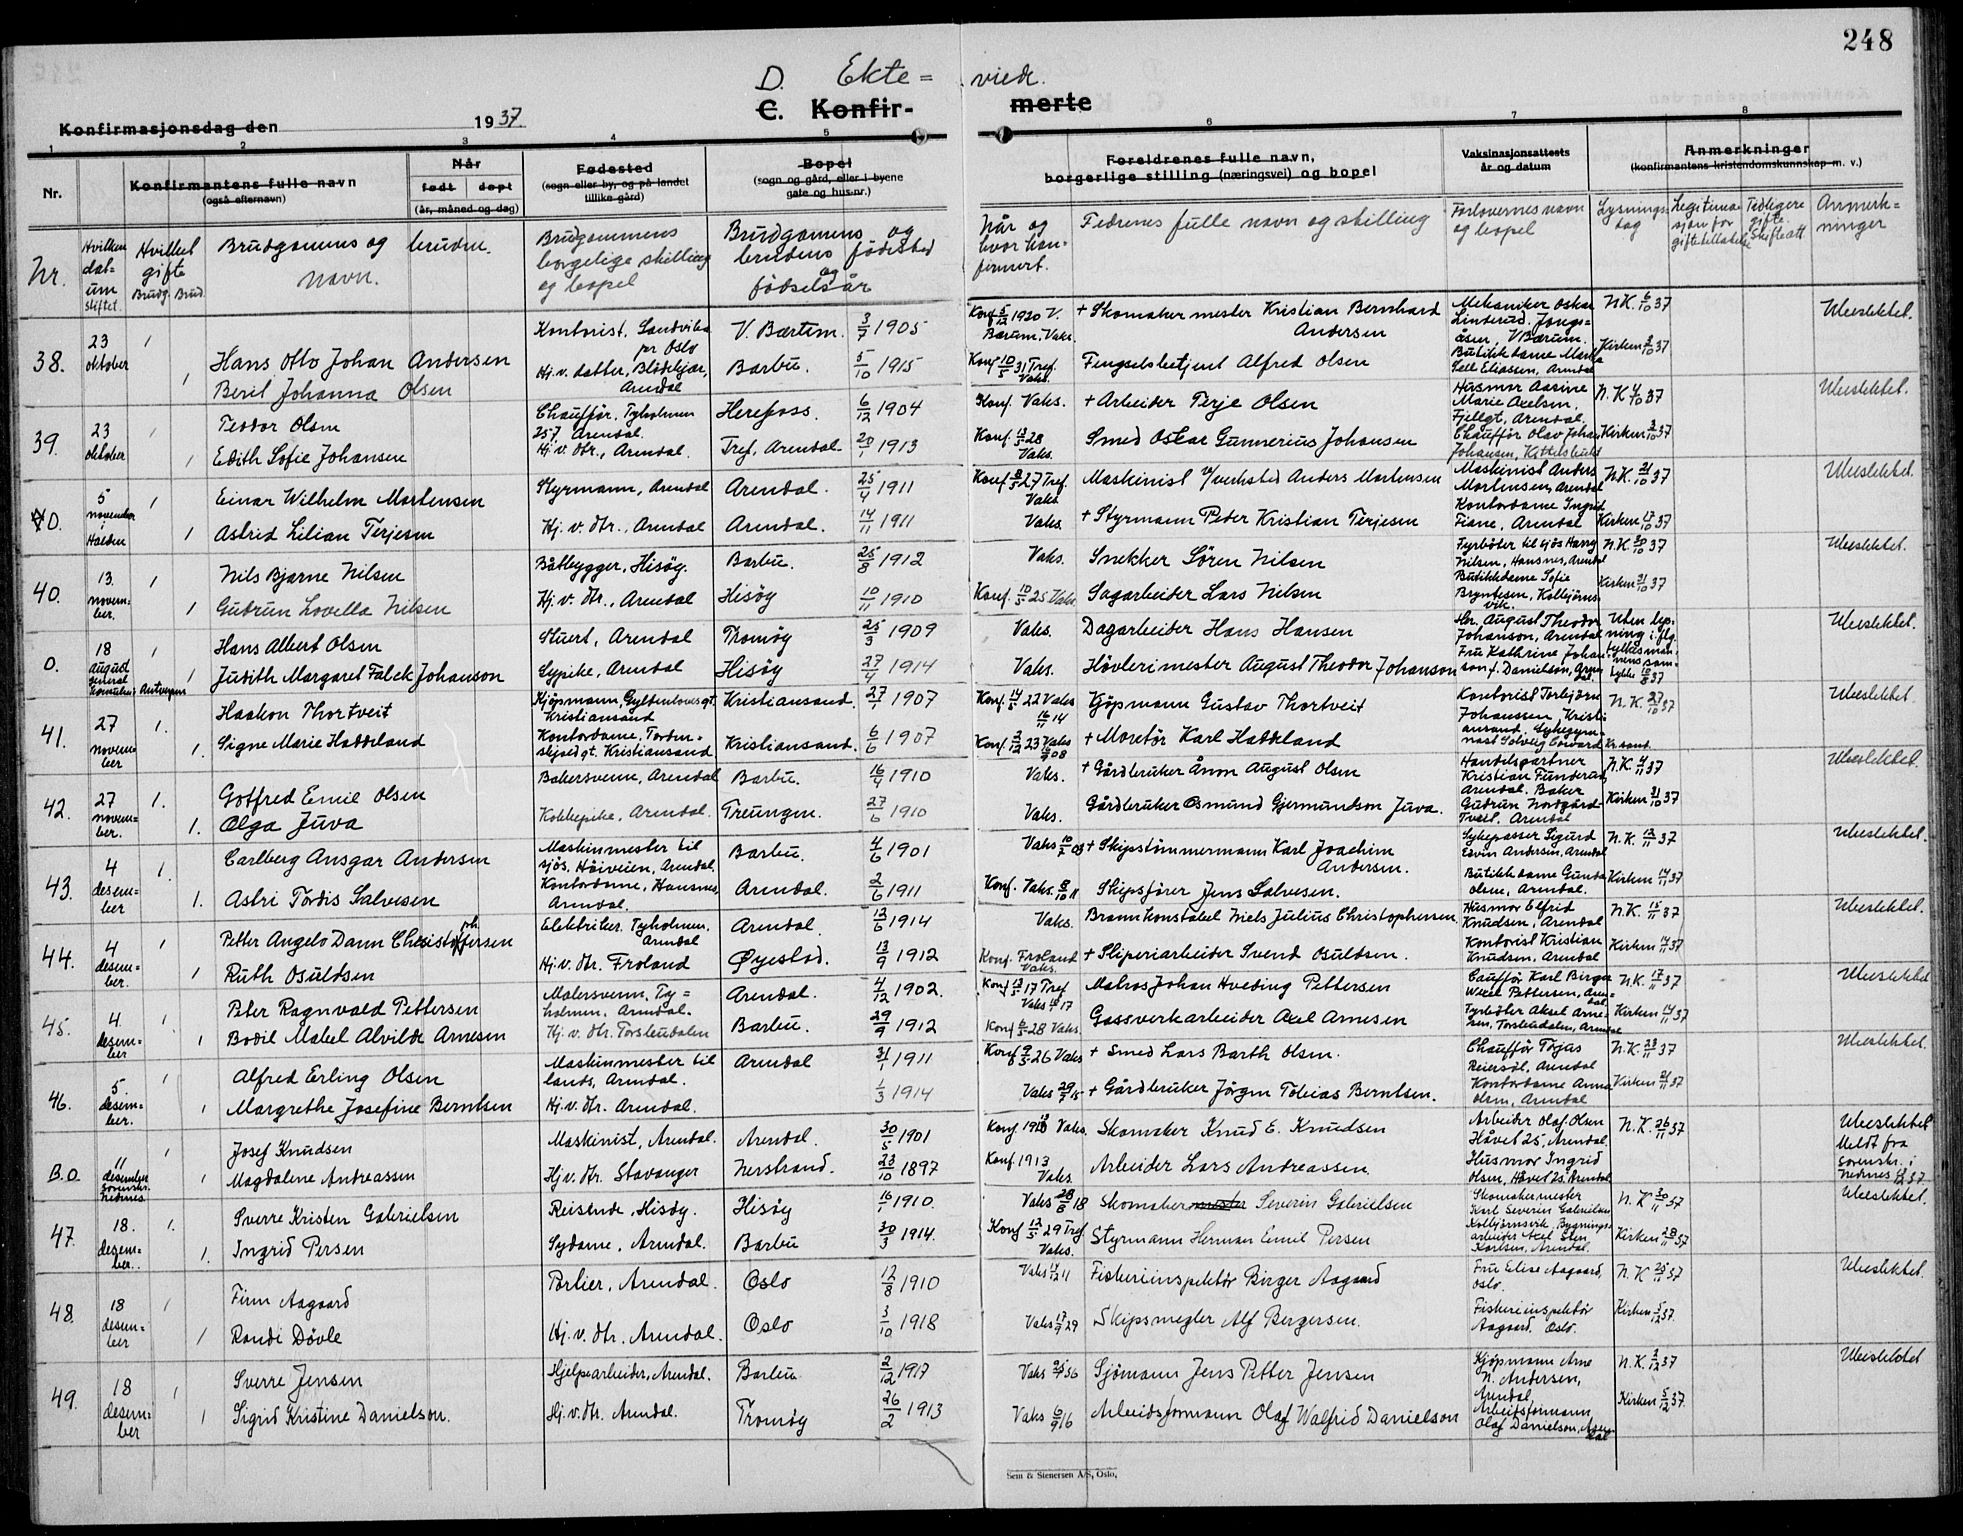 248
D. Ekte= viede.
C. Konfir- merte
Konfirmasjonsdag den 1937.
1 2 3 4 5 6 7 8
Nr. Konfirmantens fulle navn (også efternavn) Når født døpt (år, måned og dag) Fødested (sogn eller by, og på landet tillike gård) Bopel (sogn og gård, eller i byene gate og hus-nr.) Foreldrenes fulle navn, borgerlige stilling (næringsvei) og bopel Vaksinasjonsattests år og datum Anmerkninger (konfirmantens kristendomskunnskap m. v.)
Nr. Hvilken datum stiftet. Hvilket gifte Brudg. Brud. Brudgommens og brudens navn. Brudgommens borgelige stilling og bopel Brudgomens og brudens fødested og fødselsår Når og hvor konfirmert. Fedrenes fulle navn og stilling Forlovernes navn og bopel Lysningsdag Legitimasjon for giftetillatelse Tidligere gifte. Skifteatt. Anmerkninger
38. 23 oktober 1 Hans Otto Johan Andersen Kontorist, Sandvika pr Oslo V. Bærum. 3/7 1905 Konf 5/12 1920 V. Bærum, Vaks. + Skomakermester Kristian Bernhard Andersen Mekaniker Oskar Linderud. V Bærum. N.K. 6/10 37 Ubeslektet.
1 Beril Johanna Olsen Hj.v. datter, Arendal Barbu. 5/10 1915 Konf 10/5 31 Tref. Vaks. Fengselsbetjent Alfred Olsen Butikkdame Eliassen, Arendal Kirken 3/10 37
39. 23 oktober 1 Teodor Olsen Chauffør, Tyholmen 257 Arendal. Herefoss. 6/12 1904 Konf. Vaks. + Arbeider Terje Olsen Husmor Aasine Marie Axelsen, Fjellgt, Arendal. N.K. 4/10 37 Ubeslektet.
1 Edith Sofie Johansen Hj.v. dtr., Arendal. Tref, Arendal. 20/1 1913 Konf 28 Vaks. Smed Oskar Gunnerius Johansen Chauffør Olav Johan Johansen, Kittelsbukt Kirken 3/10 37
40. 5 november i Halden 1 Einar Wilhelm Mortensen Styrmann, Arendal Arendal. 25/4 1911 Konf 8/5 27 Tref. Vaks Maskinist v/verksted Anders Mortensen Maskinist Anders Mortensen, Arendal N.K. 21/10 37 Ubeslektet.
1 Astrid Lilian Terjesen Hj.v. dtr., Arendal Arendal. 14/11 1911 Vaks. + Styrmann Peder Kristian Terjesen Kontordame Ingrid Fiane, Arendal Kirken 17/10 37
40. 13. november. 1 Nils Bjarne Nilsen Båtbygger, Hisøy. Barbu. 25/8 1912 Vaks. Snekker Søren Nilsen Fyrbøter til sjøs Harry Nilsen, Hansnes, Arendal N.K. 30/10 37 Ubeslektet.
1 Gudrun Lovella Nilsen Hj.v. dtr., Arendal Hisøy 10/11 1910 Konf. 10/5 25 Vaks Sagarbeider Lars Nilsen Butikkdame Sofie Bryntesen, Kolbjørnsvik. Kirken 31/10 37
0. 18 august generalkonsulat Antverpen 1 Hans Albert Olsen Stuert, Arendal Tromøy 25/3 1909 Vaks. Dagarbeider Hans Hansen Hr. August Theodor Johanson, Arendal Uten lysning i flg. Ubeslektet.
1 Judith Margaret Falck Johanson Sypike, Arendal Hisøy 27/4 1914 Vaks. Høvlerimester August Theodor Johanson Fru Kathrine Johanson f. Danielson, 37
41. 27 november 1. Haakon Thortveit Kjøpmann, Gyldenlovesgt. Kristiansand Kristiansand. 27/1 1907 Konf. 14/5 22 Vaks 16/11 14 Kjøpmann Gustav Thortveit Kontorist Torbjørn Johanssen, Kristiansand, Sykegymnast Solveig N.K. 27/10 37 Ubeslektet
1. Signe Marie Haddeland Kontordame, Tordenskjoldgt. Kristiansand Kristiansand. 6/6 1907 Konf. 2/12 23 Vaks 08 + Moretør Karl Haddeland Kr.sand.
42. 27 november. 1. Gotfred Emil Olsen Bakersvenn, Arendal Barbu. 16/4 1910 Vaks. + Gårdbruker Ånon August Olsen Handelspartner Kristian Funderud, Arendal. N.K. 4/11 37 Ubeslektet.
1. Olga Juva Kokkepike, Arendal. Treungen. 27/6 1910 Vaks. Gårdbruker Osmund Gjermundson Juva. Baker Gudrun Nordgård Tveit, Arendal Kirken 31/10 37
43. 4 desember 1. Carlberg Ansgar Andersen Maskinmester til sjøs, Høiveien, Arendal. Barbu. 4/6 1901 Vaks 10/7 03 + Skipstømmermann Karl Joachim Andersen. Sykepasser Sigurd Edvin Andersen, Arendal N.K. 12/11 37 Ubeslektet.
1. Astri Tordis Salvesen Kontordame, Hansnes, Arendal. Arendal. 2/6 1911 Konf. Vaks. 8/10 11 Skipsfører Jens Salvesen. Butikkdame Gunda Olsen, Arendal. Kirken 14/11 37
44. 4 desember. 1 Petter Angelo Dann Christophersen Elektriker. Tyholmen. Arendal Arendal. 12/6 1914 Vaks. Brannkonstabel Niels Julius Christophersen Husmor Elfrid Knudsen, Arendal N.K. 15/11 37 Ubeslektet.
1 Ruth Osuldsen Hj.v. dtr. Froland Øyestad. 13/9 1912 Konf. Froland Vaks. + Sliperiarbeider Svend Osuldsen. Kontorist Kristian Knudsen, Arendal Kirken 14/11 37
45. 4. desember 1 Peter Ragnvald Pettersen Malersvenn, Tyholmen, Arendal. Arendal. 4/12 1902. Konf 13/5 17 Tref Vaks 17 Matros Johan Hveding Pettersen Cauffør Karl Birger Pettersen, Arendal. N.K. 17/11 37 Ubeslektet
1 Bodil Mabel Alvilde Arnesen Hj.v. dtr. Torsbudalen Barbu. 29/9 1912 Konf 6/5 28 Vaks. Gassverkarbeider Axel Arnesen Fyrbøter Aksel Arnesen, Torsbudalen, Arendal Kirken 14/11 37
46. 5. desember. 1 Alfred Erling Olsen Maskinmester til lands, Arendal. Arendal 31/1 1911 Konf 9/5 26 Vaks + Smed Lars Barth Olsen. Chauffør Tojas Reiersøl, Arendal N.K. 23/11 37 Ubeslektet.
1 Margrethe Josefine Berntsen Hj.v. dtr. Arendal. 1/3 1914 Vaks 29/7 15 + Gårdbruker Jørgen Tobias Berntsen. Kontordame Anna Olsen, Arendal Kirken 21/11 37
B.O. 11 desember sorenskr. Nedenes 1 Josef Knudsen Maskinist, Arendal. Arendal. 30/5 1901 Konf. Vaks. Skomaker Knud E. Knudsen Arbeider Olaf Olsen Håvet 25, Arendal. N.K. 26/11 37 Ubeslektet Meldt fra sorenskr. i Nedenes 37.
1 Magdalene Andreassen Hj.v. dtr. Stavanger Nerstrand. 23/10 1897 Konf. 1913 Vaks. Arbeider Lars Andreassen. Husmor Ingrid Olsen, Håvet 25 Arendal
47. 18. desember. 1. Sverre Kristen Gabrielsen Reisende, Hisøy. Hisøy 16/1 1910. Vaks 28/6 18 Skomakermester Severin Gabrielsen Skomakermester Karl Severin Gabrielsen Kolbjørnsvik, N.K 30/11 37 Ubeslektet.
1. Ingrid Persen Sydame, Arendal. Barbu 30/3 1914. Konf 12/5 29 Tref Vaks. Styrmann Herman Emil Persen Bygningsarbeider Axel Sten Karlsen, Arendal. Kirken 28/11 37
48. 18 desember 1 Finn Aagaard Portier, Arendal. Oslo 12/8 1910 Vaks 4/12 11 Fiskeriinspektør Birger Aagaard Fru Elise Aagaard, Oslo. N.K 25/11 37 Ubeslektet.
1 Randi Døvle Hj.v. dtr. Arendal. Oslo 3/10 1918 Vaks 17/9 29 Skipsmegler Alf Bergersen. Fiskeriinspektør Aagaard, Oslo. Kirken 5/12 37.
49. 18 desember 1 Sverre Jensen Hjelpearbeider, Arendal. Barbu 2/12 1917 Vaks 36 Sjømann Jens Petter Jensen Kjøpmann Arne N. Andersen, Arendal. N.K. 3/12 37 Ubeslektet
1 Sigrid Kristine Danielson. Hj.v. dtr. Arendal. Tromøy 26/2 1913 Vaks 6/9 16 Arbeidsformann Olaf Walfrid Danielson Arbeidsformann Olaf Danielson, Arendal Kirken 5/12 37.
Sem & Stenersen A/S, Oslo.